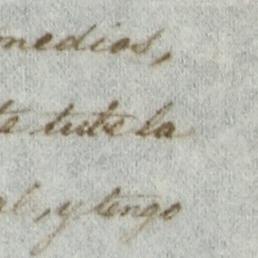 medios,
te tutela
al, y tengo